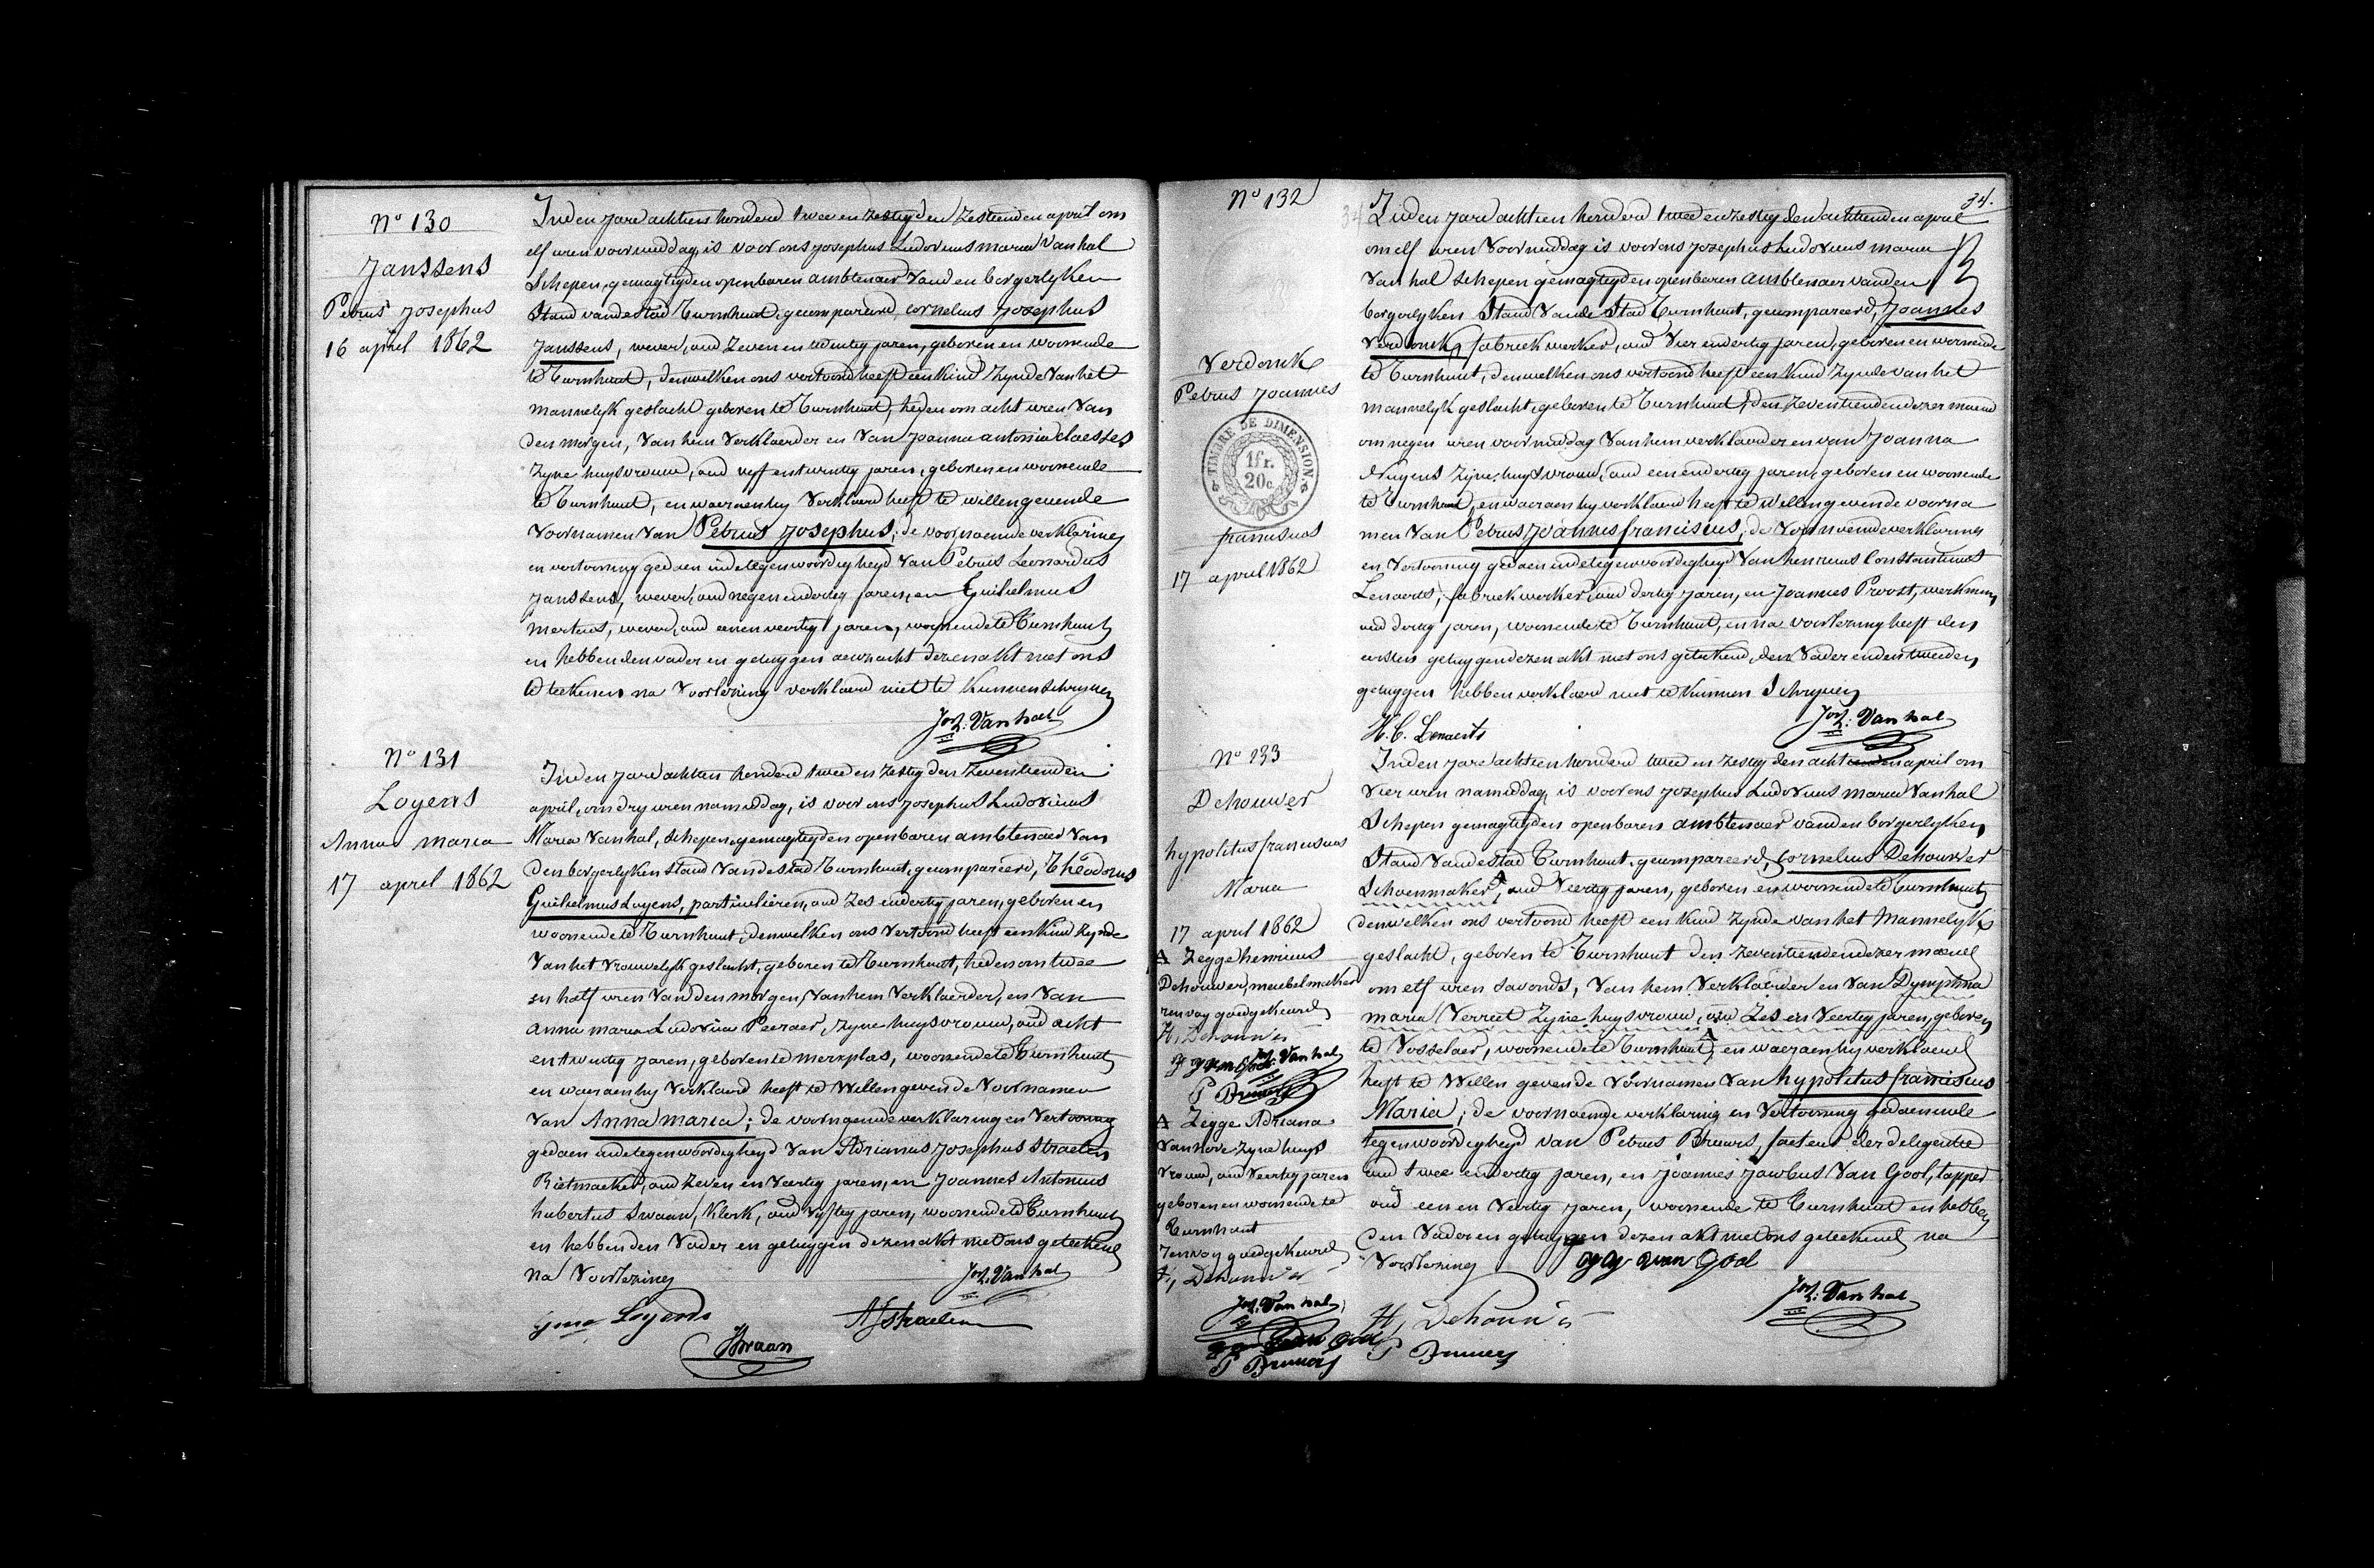 N° 130
Janssens
Petrus Josephus
16 april 1862
In den jare achtien honderd twee en zestig den zestienden april om
elf uren voormiddag, is voor ons Josephus Ludovicus Maria Van hal
Schepen, gemagtigden openbaren ambtenaer van den borgerlyken
Stand van de Stad Turnhout, gecompareerd, Cornelius Josephus
Janssens, wever, oud zeven en twintig jaren, geboren en woonende
te Turnhout, denwelken ons vertoond heeft een kind zynde van het
mannelyk geslacht geboren te Turnhout, heden om acht uren van
den morgen, van hem verklaerder en van Joanna Antonia Claesses
zyne huysvrouw, oud vyf en twintig jaren, geboren en woonende
te Turnhout, en waeraen hy verklaerd heeft te willen geven de
voornamen van Petrus Josephus; de voornoemde verklaring
en vertooning gedaen in de tegenwoordigheyd van Petrus Leonardus
Janssens, wever, oud negen en dertig jaren, en Guilielmus
Mertens, wever, oud een en veertig jaren, woonende te Turnhout
en hebben den vader en getuygen aenzocht dezen akt met ons
te teekenen na voorlezing verklaerd niet te kunnen schryven
Jos. L: Van hal
N° 131
Loyens
Anna Maria
17 april 1862
In den jare achtien honderd twee en zestig den zeventienden
april, om dry uren namiddag, is voor ons Josephus Ludovicus
Maria Van hal, Schepen, gemagtigden openbaren ambtenaer van
den borgerlyken stand van de stad Turnhout, gecompareerd, Theodorus
Guilielmus Loyens, particulieren, oud zes en dertig jaren, geboren en
woonende te Turnhout, denwelken ons vertoond heeft een kind zynde
van het vrouwelyk geslacht, geboren te Turnhout, heden om twee
en half uren van den morgen, van hem verklaerder, en van
Anna Maria Ludovica Peeraer, zyne huysvrouw, oud acht
en twintig jaren, geboren te Merxplas, woonende te Turnhout
en waeraen hy verklaerd heeft te willen geven de voornamen
van Anna Maria; de voornoemde verklaring en vertooning
gedaen in de tegenwoordigheyd van Adrianus Josephus Straelen
Rietmaeker, oud zeven en veertig jaren, en Joannes Antonius
hubertus Swaan, klerk, oud vyftig jaren, woonende te Turnhout
en hebben den vader en getuygen dezen akt met ons geteekend
na voorlezing
Jos. L. Van hal
Loyens
AJ Straelen
Swaan
34.
N° 132
Verdonck
Petrus Joannes
TIMBRE DE DIMENSION
1 fr.
20 c.
franciscus
17 april 1862
In den jare achtien honderd twee en zestig den achttienden april
om elf uren voormiddag is voor ons Josephus Ludovicus Maria
Van hal Schepen gemagtigden openbaren ambtenaer van den
borgerlyken Stand van de Stad Turnhout, gecompareerd, Joannes
Verdonck, fabriekwerker, oud vier en dertig jaren, geboren en woonende
te Turnhout, denwelken ons vertoond heeft een kind zynde van het
mannelyk geslacht, geboren te Turnhout, den zeventienden dezer maend
om negen uren voormiddag van hem verklaerder en van Joanna
Nuyens zyne huysvrouw, oud een en dertig jaren, geboren en woonende
te Turnhout, en waeraen hy verklaerd heeft te willen geven de voorna
men van Petrus Joannes franciscus; de voornoemde verklaring
en vertooning gedaen in de tegenwoordigheyd van henricus Constantinus
Lenaerts, fabriekwerker, oud dertig jaren, en Joannes Proost, werkman,
oud dertig jaren, woonende te Turnhout, en na voorlezing heeft den
eersten getuygen dezen akt met ons geteekend, den vader en den tweeden
getuygen hebben verklaerd niet te kunnen schryven
H. C. Lenaerts
Jos. L: Van hal
N° 133
Dehouwer
hypolitus franciscus
Maria
17 april 1862
A Zegge henricus
Dehouwer, meubelmaker
renvoy goedgekeurd
H, Dehouwer
Jos. L. Van hal
P Bruwers
A Zegge Adriana
Van hove zyne huys
vrouw, oud veertig jaren
geboren en woonende te
Turnhout
renvoy goedgekeurd
H, Dehouwer
Jos. L. Van hal
van Gool
P Bruwers
In den jare achtien honderd twee en zestig den achttienden april om
vier uren namiddag, is voor ons Josephus Ludovicus Maria Van hal
Schepen gemagtigden openbaren ambtenaer van den borgerlyken
Stand van de stad Turnhout, gecompareerd, Cornelius Dehouwer
Schoenmaker A, oud veertig jaren, geboren en woonende te Turnhout
denwelken ons vertoond heeft een kind zynde van het mannelyk
geslacht, geboren te Turnhout den zeventienden dezer maend
om elf uren savonds, van hem verklaerder en van Dymphna
Maria Verreet zyne huysvrouw, oud zes en veertig jaren, geboren
te Vosselaer, woonende te Turnhout A, en waeraen hy verklaerd
heeft te willen geven de voornamen van hypolitus franciscus
Maria; de voornoemde verklaring en vertooning gedaen in de
tegenwoordigheyd van Petrus Bruwers, facteur der deligentie
oud twee en dertig jaren, en Joannes Jacobus Van Gool, tapper
oud een en veertig jaren, woonende te Turnhout en hebben
den vader en getuygen dezen akt met ons geteekend na
voorlezing
van Gool
Jos. L: Van hal
H, Dehouwer
P Bruwers